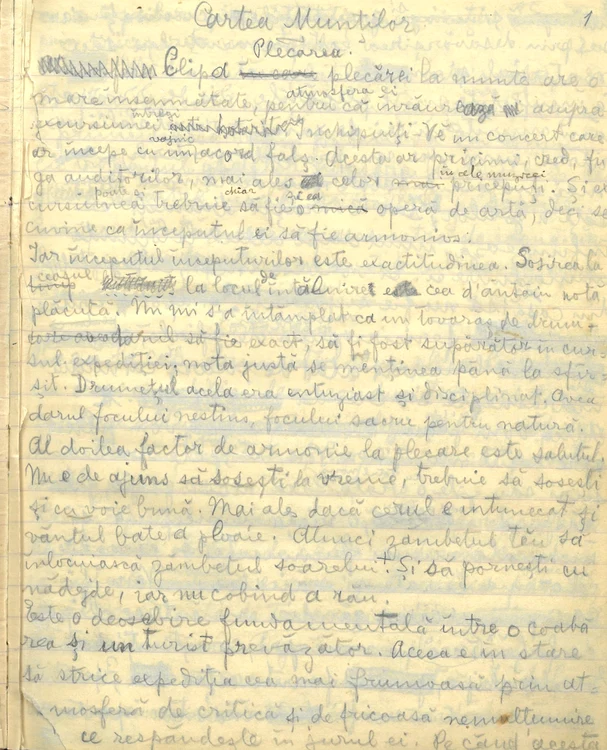 Cartea Munților 1
Plecarea.
Clipa plecării la munte are o
mare însemnătate, pentru că atmosfera ei înrâurează asupra
excursiunei întregi. Închipuiți-Vă un concert care
ar începe cu un vajnic acord fals. Acesta ar pricinui, cred, fu
ga auditorilor, mai ales celor în ale muzicei pricepuți. Și ex
cursiunea trebuie să fie și ea o operă de artă, deci se
cuvine ca începutul ei să fie armonios.
Iar începutul începuturilor este exactitudinea. Sosirea la
ceasul la locul de întâlnire e cea d'ântâiu notă
plăcută. Nu mi s'a întâmplat ca un tovarăș de drum
să fie exact, să fi fost supărător în cur-
sul expediției; nota justă se menținea până la sfâr-
șit. Drumețul acela era entuziast și disciplinat. Avea
darul focului nestins, focului sacru pentru natură.
Al doilea factor de armonie la plecare este salutul.
Nu e de ajuns să sosești la vreme, trebuie să sosești
și cu voie bună. Mai ales dacă cerul e întunecat și
vântul bate a ploaie. Atunci zâmbetul tău să
înlocuiască zâmbetul soarelui. Și să pornești cu
nădejde, iar nu cobind a rău.
Este o deosebire fundamentală între o coabă
rea și un turist prevăzător. Aceea e în stare
să strice expediția cea mai frumoasă prin at-
mosferă de critică și de fricoasă nemulțumire
ce respândește în jurul ei. Pe când acesta